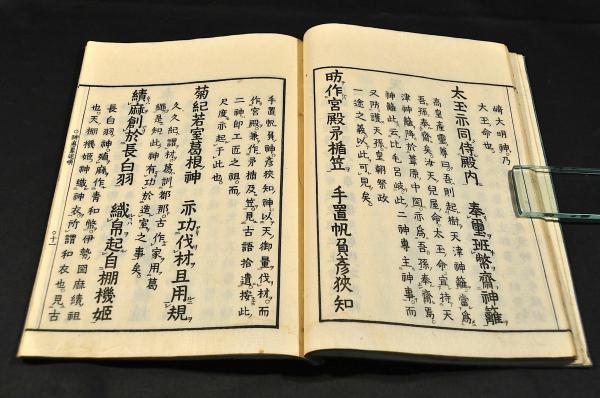 崎大明神、乃
大玉命也。
太玉亦同侍殿内 奉璽班幣齋神籬
高皇產靈尊曰。吾則起樹天津神籬。當爲
吾孫奉齋矣。汝天兒屋命太玉命。宜持天
津神籬。降於葦原中國。亦爲吾孫奉齋焉。
神籬此云比毛呂岐。此二神專主神事。而
又防護天孫皇朝祭政
一途之義以此可見矣。
昉作宮殿矛楯笠 手置帆負彥狹知
手置帆負神彥狹知神。以天御量伐材。而
作宮殿。兼作矛楯及笠。見古語拾遺。按此
二神卽工匠之祖。而
尺度亦起于此也。
菊紀若室葛根神 示功伐材且用規
久久紀謂材。葛訓都那。古作家用葛
繩。是知此神有功於造室之事矣。
績麻創於長白羽 織帛起自棚機姬
長白羽神殖麻。作青和幣。伊勢國麻績祖
也。天棚機姬神織神衣。所謂和衣也。見古